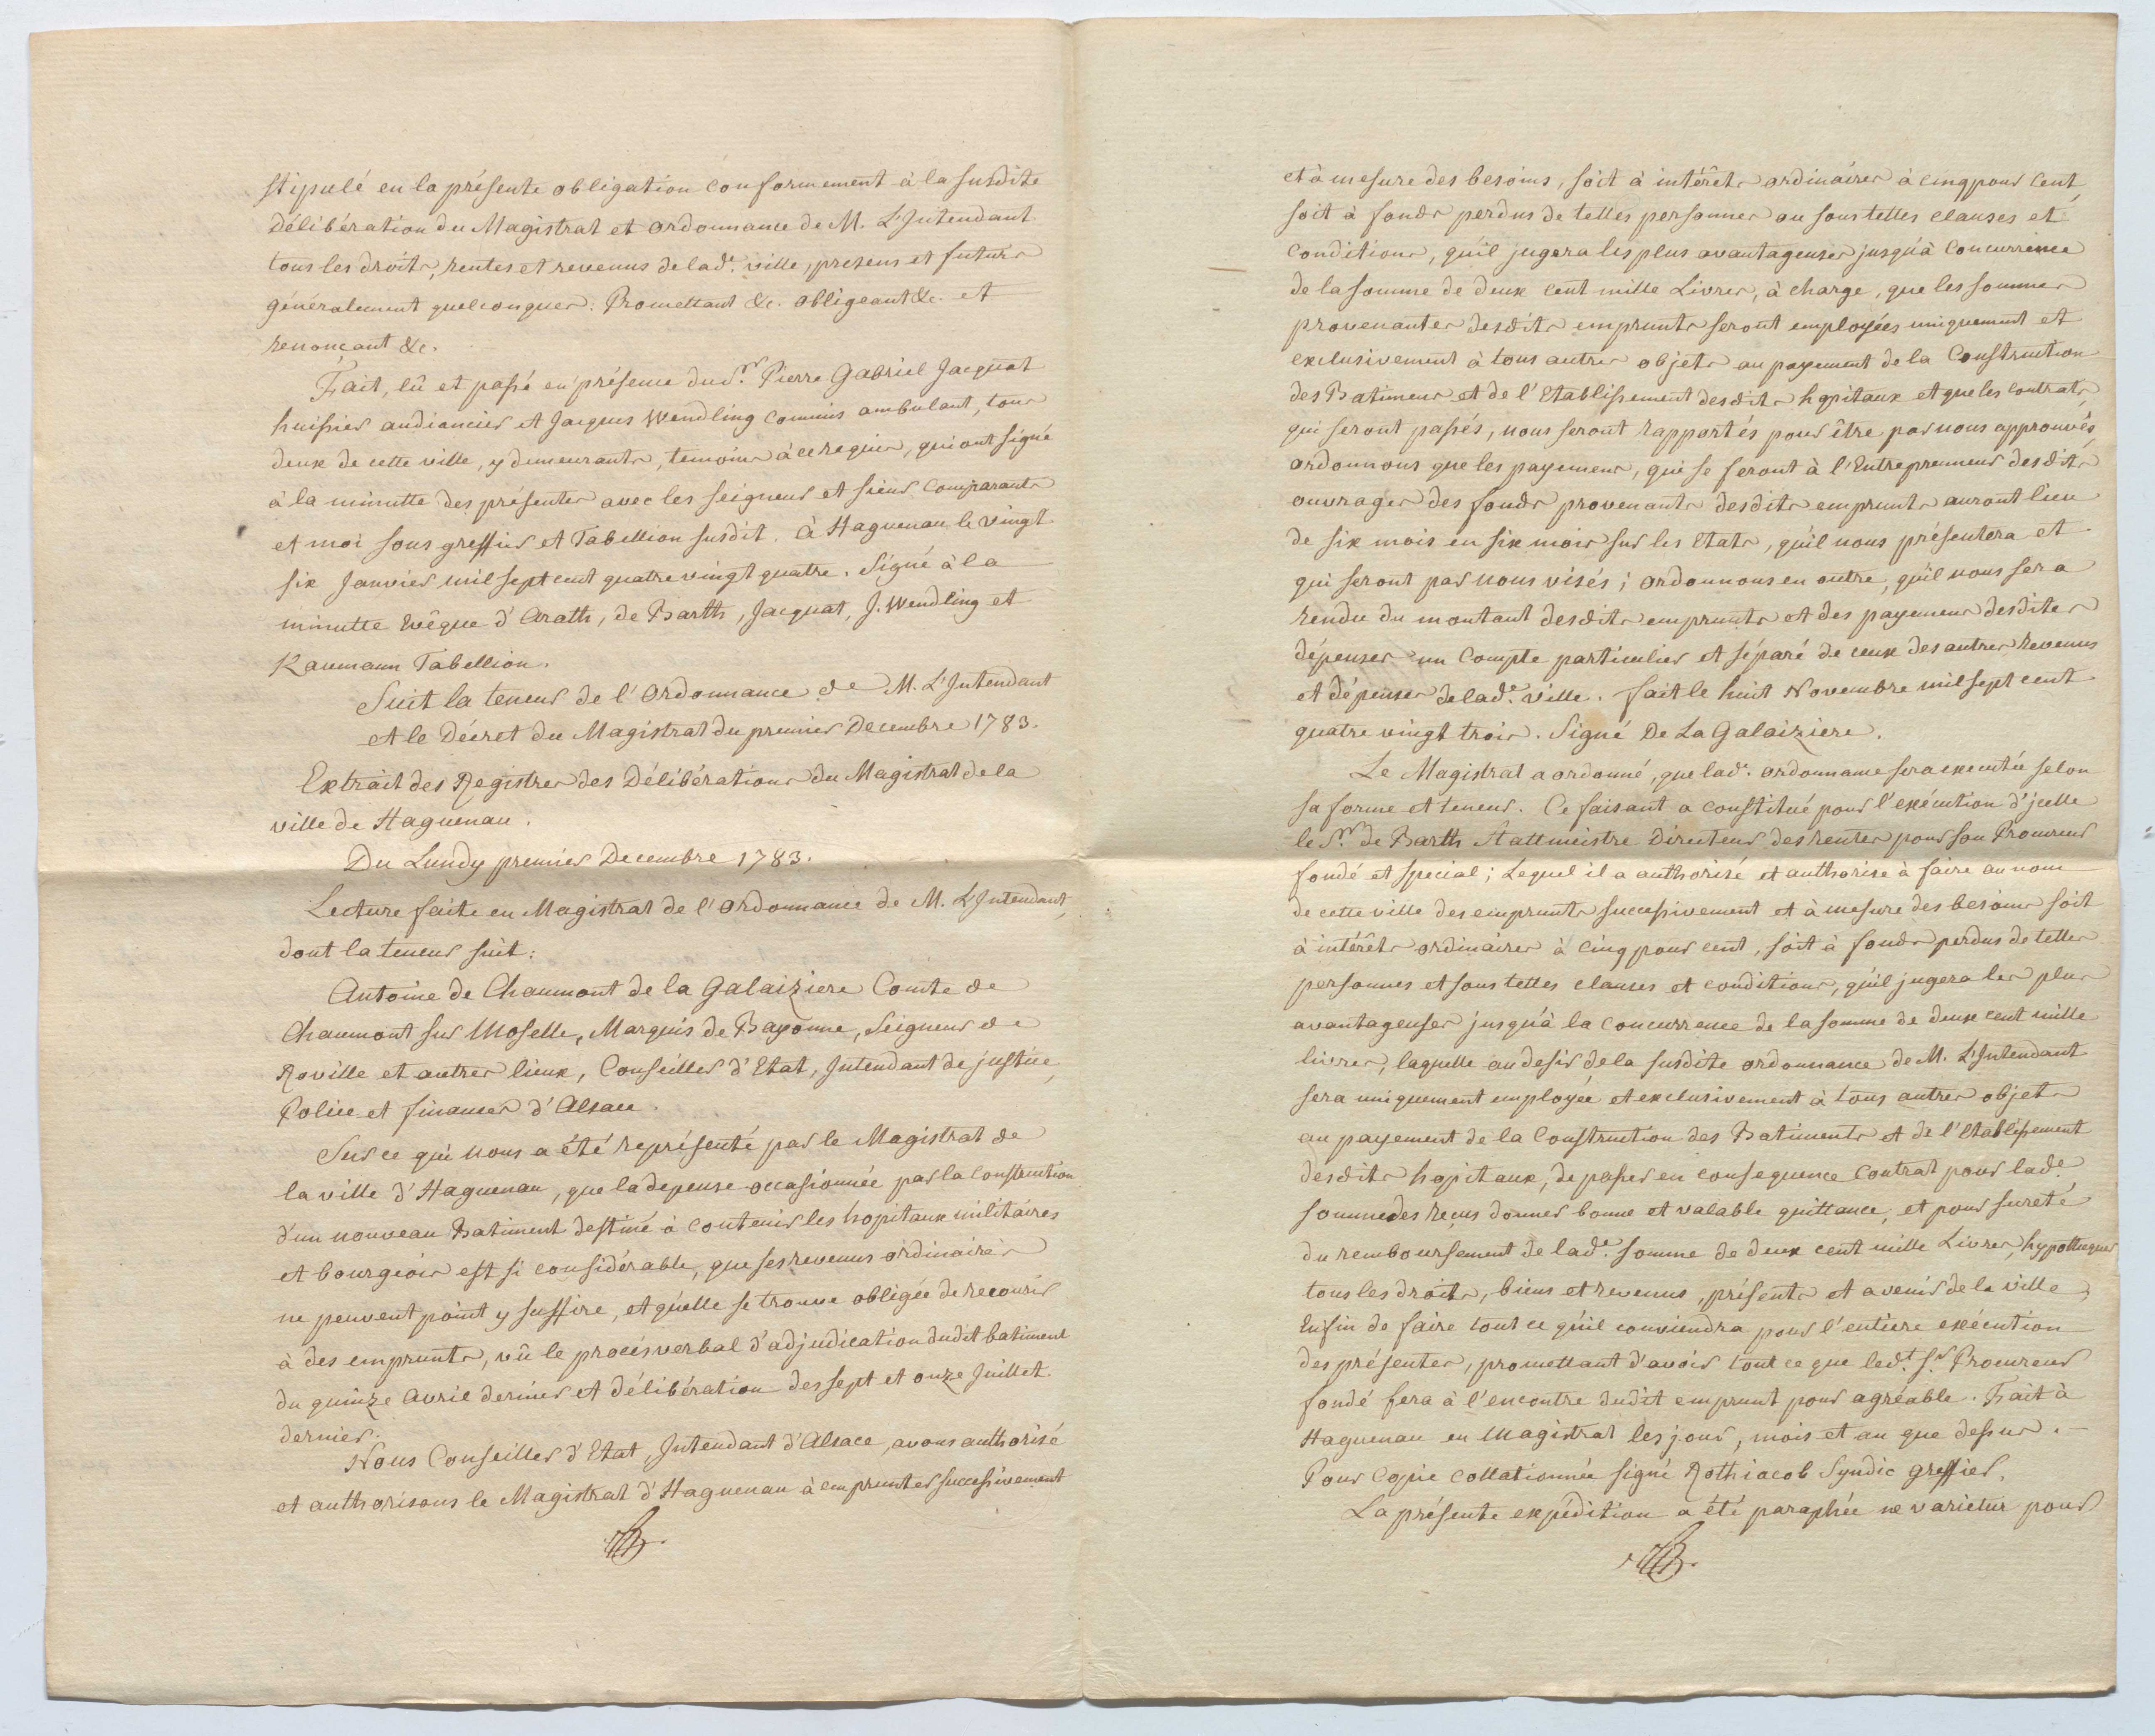 stipulé en la présente obligation conformement à la susdite
Délibération du Magistrat et ordonnance de M. L'Intendant
tous les droits, rentes et revenus de lad.e ville, presens et futurs
généralement quelconques. Promettant &c. obligeant &c. et
renonçant &c.
Fait, lû et passé en présence du S.r Pierre Gabriel Jacquat
huissier audiancier et Jacques Wendling commis ambulant, tous
deux de cette ville, y demeurants, temoins à ce requis, qui ont signé
à la minutte des présentes avec les seigneur et sieur Comparants
et moi sous greffier et Tabellion susdit. à Haguenau le vingt
six Janvier mil sept cent quatre vingt quatre. Signé à la
minutte Evêque d'Arath, de Barth, Jacquat, J. Wendling et
Kaumann Tabellion.
Suit la teneur de l'Ordonnance de M. L'Intendant
et le Décret du Magistrat du premier Decembre 1783.
Extrait des Registres des Délibérations du Magistrat de la
ville de Haguenau.
Du Lundy premier Decembre 1783.
Lecture faite en Magistrat de l'ordonnance de M. L'Intendant,
dont la teneur suit:
Antoine de Chaumont de la Galaiziere Comte de
Chaumont sur Moselle, Marquis de Bayonne, Seigneur de
Roville et autres lieux, Conseiller d'Etat, Intendant de justice,
Police et finances d'Alsace.
Sur ce qui nous a été représenté par le Magistrat de
la ville d'Haguenau, que la depense occasionnée par la Construction
d'un nouveau Batiment destiné à contenir les hopitaux militáires
et bourgeois est si considérable, que ses revenus ordinaires
ne peuvent point y suffire, et qu'elle se trouve obligée de recourir
à des emprunts, vû le procés verbal d'adjudication dudit batiment
du quinze Avril dernier et délibération des sept et onze Juillet
dernier.
Nous Conseiller d'Etat, Intendant d'Alsace, avons authorisé
et authorisons le Magistrat d'Haguenau à emprunter successivement
et à mesure des besoins, soit à intérêts ordinaires à cinq pour cent,
soit à fonds perdus de telles personnes ou sous telles clauses et
conditions, qu'il jugera les plus avantageuses jusqu'à concurrence
de la somme de deux cent mille Livres, à charge, que les sommes
provenantes desdits emprunts seront employées uniquement et
exclusivement à tous autres objets au payement de la Construction
des Batimens et de l'Etablissement desdits hopitaux et que les contrats,
qui seront passés, nous seront rapportés pour être par nous approuvés,
ordonnons que les payemens, qui se feront à l'Entrepreneur desdits
ouvrages des fonds provenants desdits emprunts auront lieu
de six mois en six mois sur les Etats, qu'il nous présentera et
qui seront par nous visés; ordonnons en outre, qu'il nous sera
rendu du montant desdits emprunts et des payemens desdites
dépenses un Compte particulier et séparé de ceux des autres revenus
et dépenses de lad.e ville. fait le huit Novembre mil sept cent
quatre vingt trois. Signé De La Galaiziere.
Le Magistrat a ordonné, que lad. ordonnance sera executée selon
sa forme et teneur. Ce faisant a constitué pour l'exécution d'jcelle
le S.r de Barth Stattmeistre Directeur des rentes pour son Procureur
fondé et special; Lequel il a authorisé et authorise à faire au nom
de cette ville des emprunts successivement et à mesure des besoins soit
à intérêts ordináires à cinq pour cent, soit à fonds perdus de telles
personnes et sous telles clauses et conditions, qu'il jugera les plus
avantageuses jusqu'à la concurrence de la somme de deux cent mille
livres, laquelle au desir de la susdite ordonnance de M. L'Intendant
sera uniquement employée et exclusivement à tous autres objets
au payement de la Construction des Batiments et de l'Etablissement
desdits hopitaux, de passer en consequence Contrat pour lad.e
somme des reçus donner bonne et valable quittance, et pour sureté
du remboursement de lad.e somme de deux cent mille Livres, hypothequer
tous les droits, biens et revenus, présents et avenir de la ville,
Enfin de faire tout ce qu'il conviendra pour l'entiere exécution
des présentes, promettant d'avoir tout ce que led.t S.r Procureur
fondé fera à l'encontre dudit emprunt pour agréable. Fait à
Haguenau en Magistrat les jour, mois et an que dessus.
Pour Copie collationnée signé Rothjacob Syndic greffier.
La présente expédition a été paraphée ne varietur pour